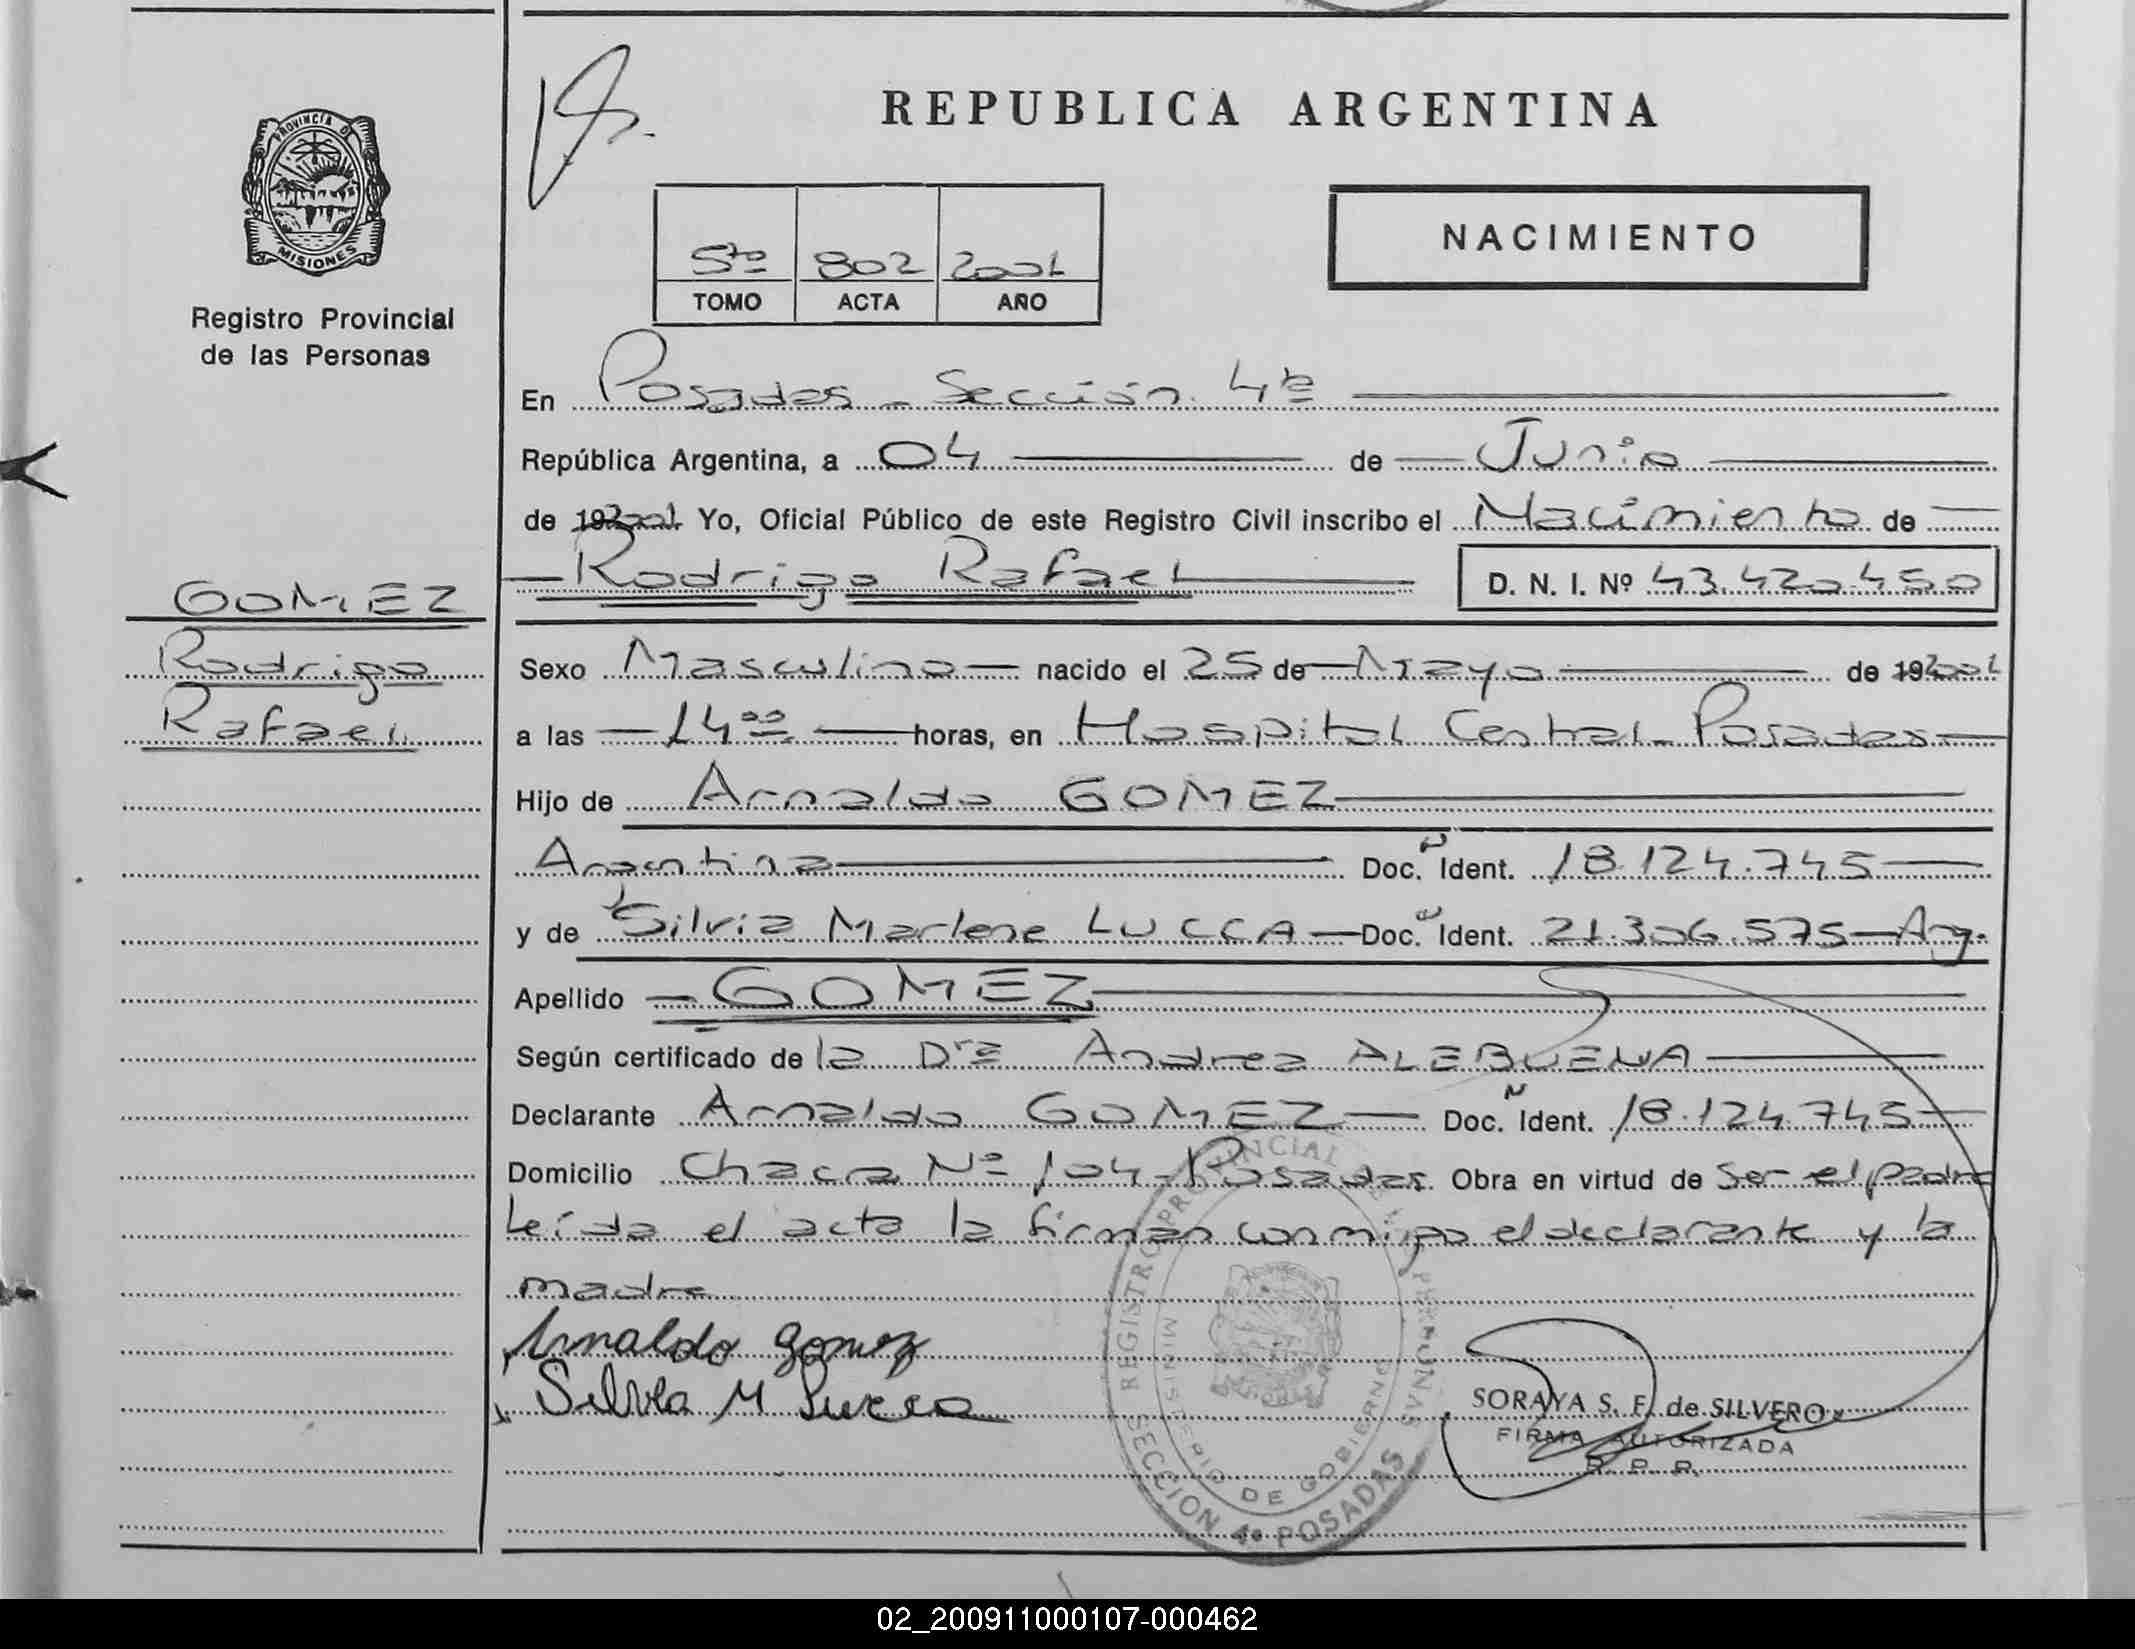 PROVINCIA DE
MISIONES
Registro Provincial
de las Personas
GOMEZ
Rodrigo
Rafael
REPUBLICA ARGENTINA
NACIMIENTO
5to 802 2001
TOMO ACTA AÑO
En Posadas - Sección 4ta
República Argentina, a 04 de Junio
de 2001 Yo, Oficial Público de este Registro Civil inscribo el Nacimiento de
Rodrigo Rafael D. N. I. Nº 43.420.450
Sexo Masculino nacido el 25 de Mayo de 2001
a las 14 00 horas, en Hospital Central - Posadas
Hijo de Arnaldo GOMEZ
Argentina Doc. Nº Ident. 18.124.745
y de Silvia Marlene LUCCA Doc. Ident. 21.306.575 - Arg.
Apellido GOMEZ
Según certificado de la Dra Andrea ALEBUENA
Declarante Arnaldo GOMEZ Doc. N Ident. 18.124.745
Domicilio Chacra Nº 104 - Posadas. Obra en virtud de ser el padre
Leída el acta la firman conmigo el declarante y la
madre
Arnaldo gomez
Silvia M Lucca
REGISTRO PROVINCIAL DE LAS PERSONAS
MINISTERIO DE GOBIERNO
SECCION 4ª POSADAS
SORAYA S. F. de SILVERO
FIRMA AUTORIZADA
R. P. P.
02_200911000107-000462